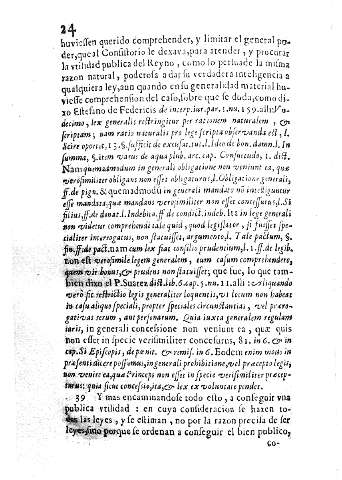 24
huviessen querido comprehender, y limitar el general po-
der, que al Consistorio le dexava, para atender, y procurar
la vtilidad publica del Reyno, como lo persuade la misma
razon natural, poderosa a dar su verdadera inteligencia a
qualquiera ley, aun quando en su generalidad material hu-
viesse comprehension del caso, sobre que se duda, como di-
xo Estefano de Federicis de interp. iur. par. 1. nu. 159. alli: Vn-
decimo, lex generalis restringitur per rationem naturalem, &
scriptam; nam ratio naturalis pro lege scripta observanda est, l.
scire oportet, 13. §. sufficit de excusat. tut. l. ideo de bon. damn. l. In
summa, §. item varus de aqua plub. arc. cap. Consuetudo, 1. dist.
Nam quemadmodum in generali obligatione non veniunt ea, quæ
verosimiliter obligans non esset obligaturus, l. Obligatione generali,
ff. de pign. & quemadmodum in generali mandato nõ intelliguntur
esse mandata, quæ mandans verosimiliter non esset concessurus, l. Si
filius, ff. de donat. l. Indebita, ff. de condict. indeb. Ita in lege generali
non videtur comprehendi tale quid, quod legislator, si fuisset spe-
cialiter interrogatus, non statuisset, argumento, l. Tale pactum, §.
fin. ff. de pact. nam cum lex sit consilio prudentium, l. 1. ff. de legib.
non est verosimile legem generalem, eum casum comprehendere,
quem vir bonus, & prudens non statuisset; que fue, lo que tam-
bien dixo el P. Suarez dict. lib. 6. cap. 5. nu. 11. alli: Aliquando
verò fit restrictio legis generaliter loquentis, vt locum non habeat
in casu quoad speciales, propter circunstantias, vel præro-
gativas rerum, aut personarum. Quia iuxta generalem regulam
iuris, in generali concessione non veniunt ea, quæ quis
non esset in specie verisimiliter concesurus, 81. in 6. & in
cap. Si Episcopus, de pœnit. & remiss. in 6. Eodem enim modo in
præsenti dicere possumus, in generali prohibitione, vel præcepto legis,
non venire ea, quæ Princeps non esset in specie verisimiliter præcep-
turus: quia sicut concessio, ita, & lex ex voluntate pendet.
39 Y mas encaminandose todo esto, a conseguir vna
publica vtilidad: en cuya consideracion se hazen to-
das las leyes, y se estiman, no por la razon precisa de ser
leyes, sino porque se ordenan a conseguir el bien publico,
co-